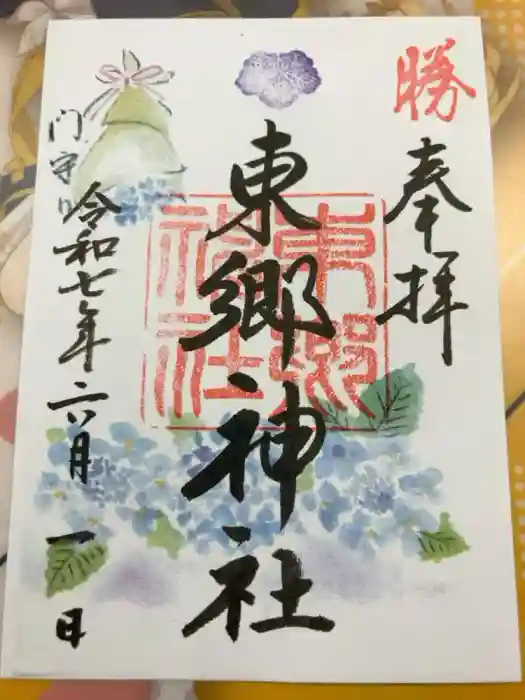 勝
奉拝
東郷神社
東郷神社
門守り
令和七年六月一日